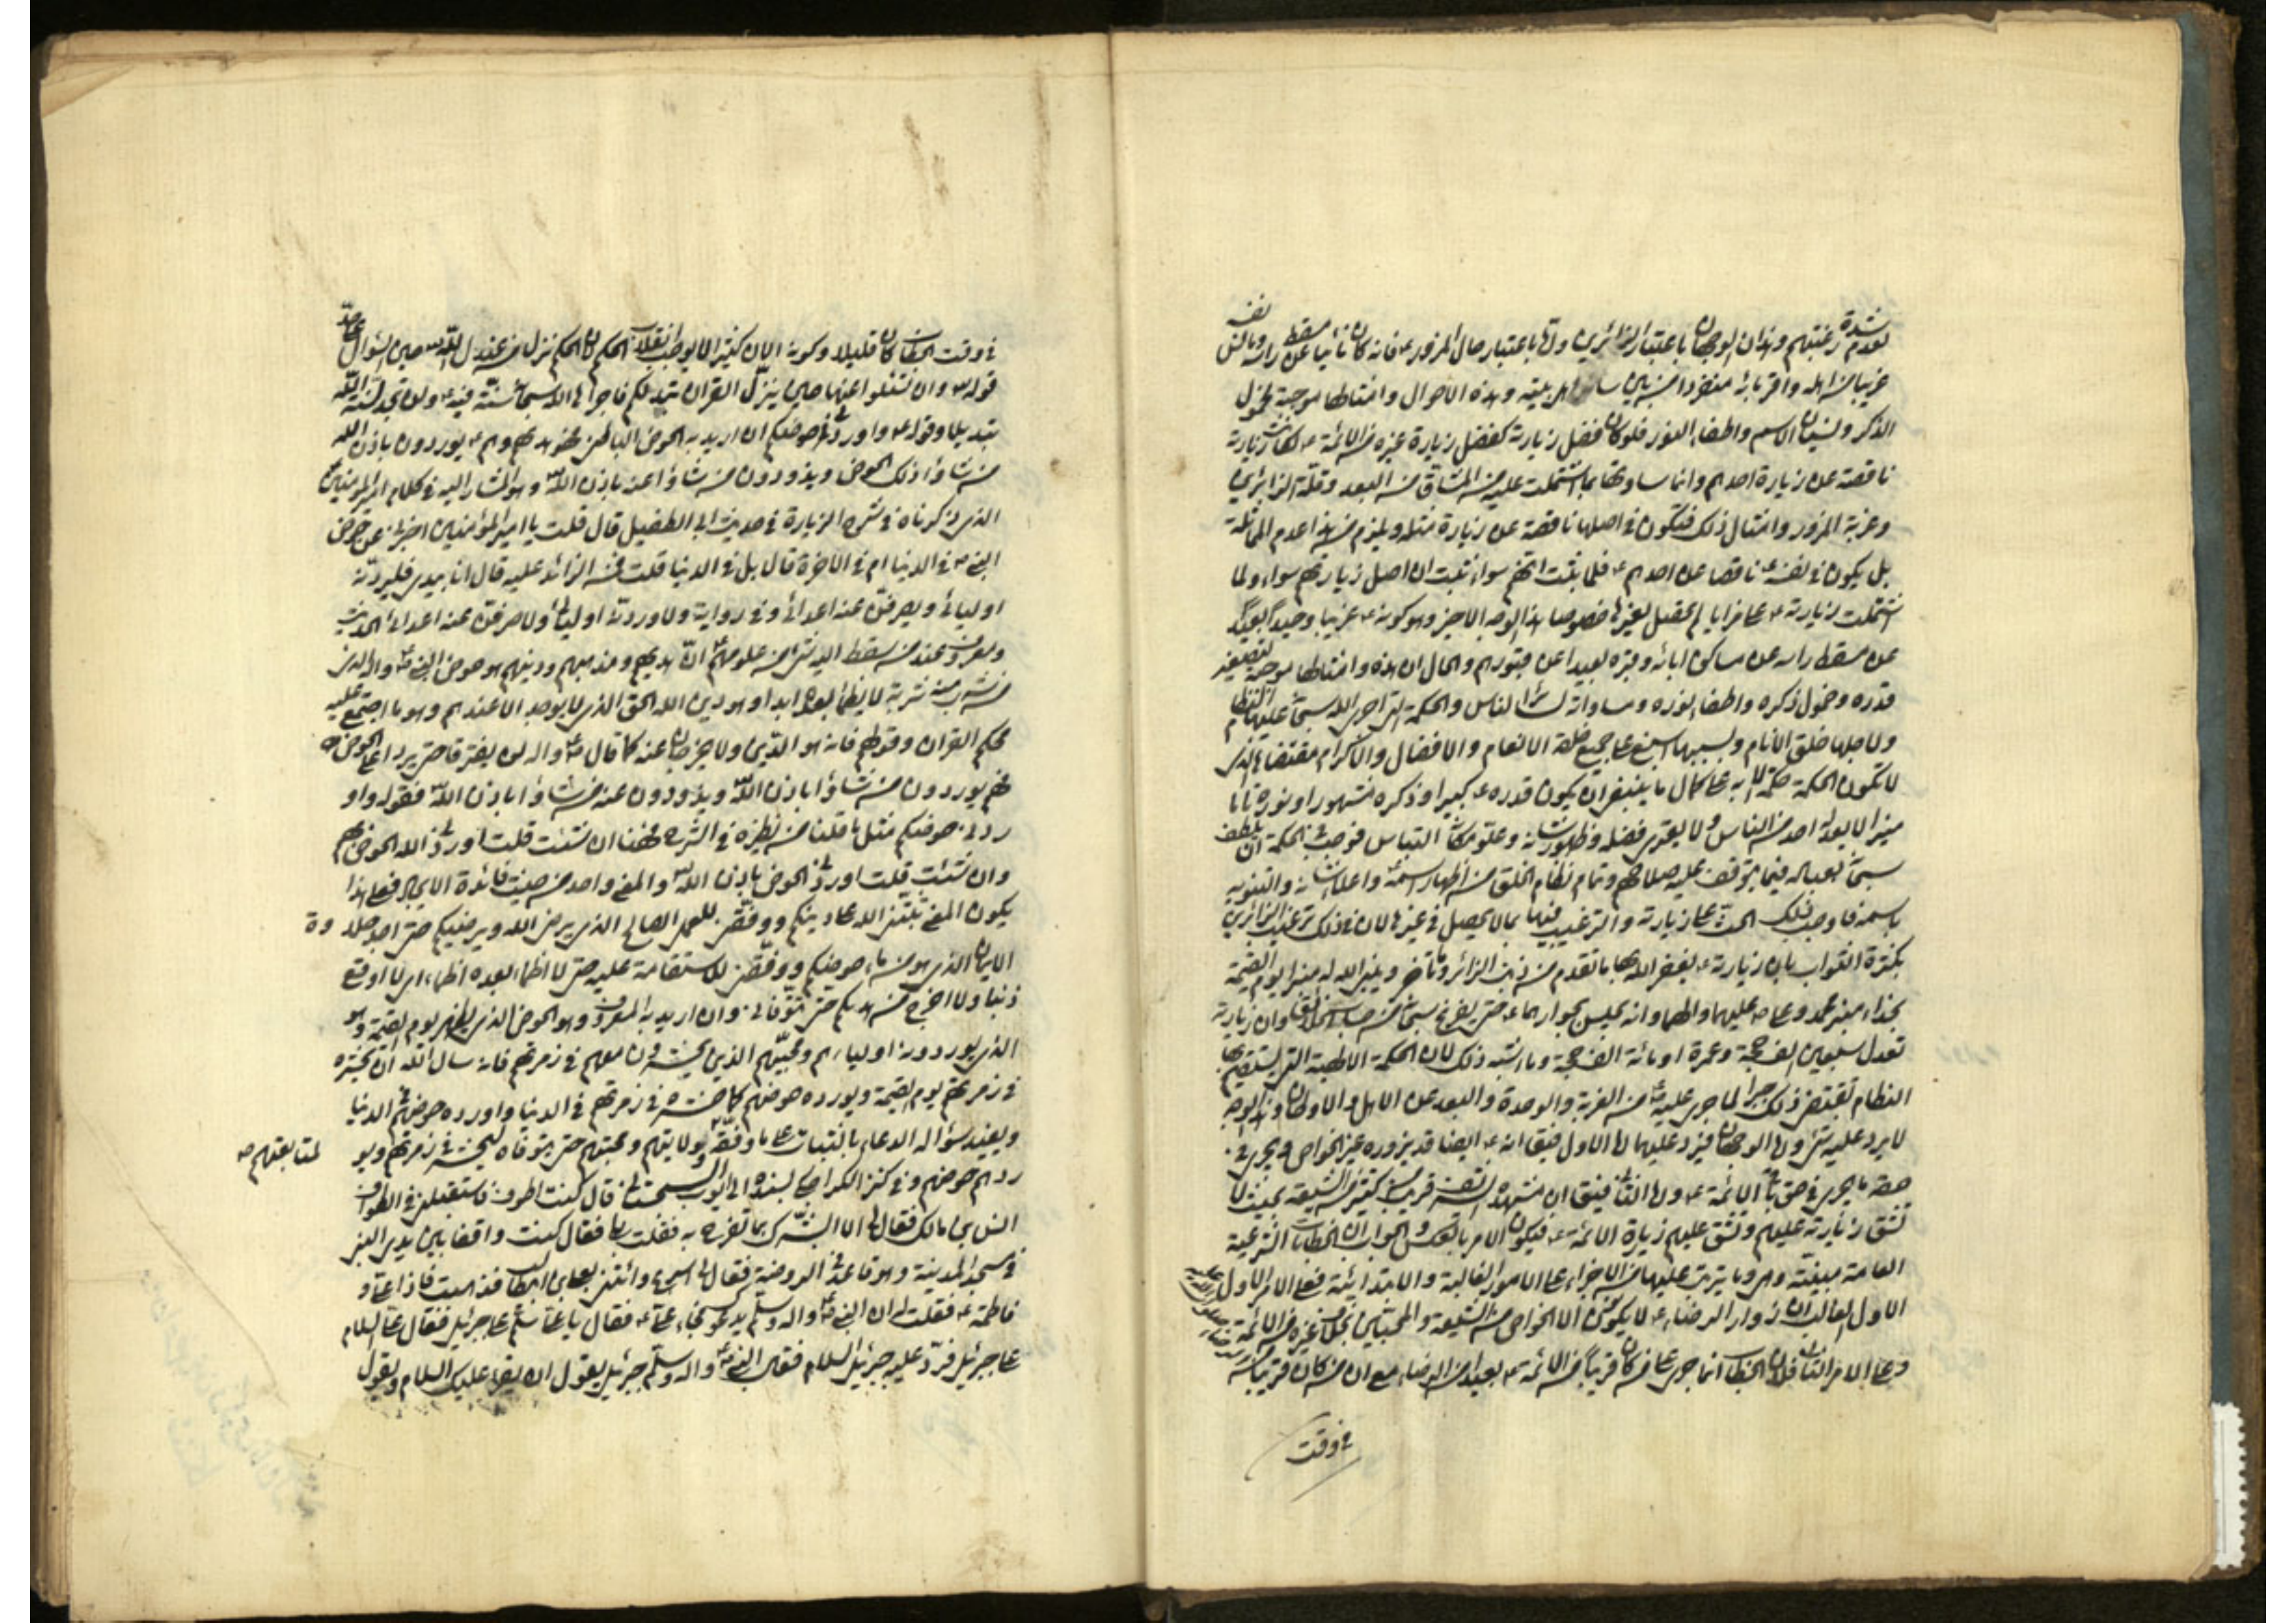 لعدم شدة رغبتهم وهذان الوجهان باعتبار الزائرين وثالثها باعتبار حال المزور ع فانه كان نائيا عن مسقط راسه والش
غريبا من اهله واقربائه منفردا من بين ساير اهل بيته وهذه الاحوال وامثالها موجبة لخمول
الذكر ونسيان الاسم واطفاء النور فلو كان فضل زيارته كفضل زيارة غيره من الائمة ع لكانت زيارته
ناقصة عن زيارة احدهم وانما ساوتها بما اشتملت عليه من المشاق من البعد وقلة الزائرين
وغربة المزور وامثال ذلك فتكون في اصلها ناقصة عن زيارة مثله ويلزم من هذا عدم المماثلة
بل يكون في نفسه ع ناقصا عن احدهم ع فلما ثبت انهم سواء ثبت ان اصل زيارتهم سواء ولما
اشتملت زيارته ع على مزايا لم تحصل لغيرها خصوصا هذا الوجه الاخير وهو كونه ع غريبا وحيدا بعيدا
عن مسقط راسه عن مساكن ابائه وقبره بعيدا عن قبورهم والحال ان هذه وامثالها موجبة لتصغير
قدره وخمول ذكره واطفاء نوره ومساواته لسائر الناس والحكمة التي اجرى الله سبحانه عليها النظام
ولاجلها خلق الانام وبسببها اسبغ على جميع خلقه الانعام والافضال والاكرام مقتضاها الذي
لا تكون الحكمة حكمة الا به على كمال ما ينبغي ان يكون قدره ع كبيرا وذكره مشهورا ونوره تاما
منيرا لا يعدله احد من الناس ولا يعتري فضله وظهور شانه وعلو مكانه التباس فوجب في الحكمة ان يلطف
سبحانه بعباده فيما يتوقف عليه صلاحهم وتمام نظام الخلق من اظهار اسمه ع واعلاء شانه والتنويه
باسمه فاوجب ذلك الحث على زيارته والترغيب فيها بما لا يحصل في غيرها لان في ذلك ترغيب الزائرين
بكثرة الثواب بان زيارته ع يغفر الله بها ما تقدم من ذنب الزائر وما تاخر وينبر الله له منبرا يوم القيمة
بحذاء منبر محمد وعلي ص عليهما والهما وانه يجلس بجوارهما ع حتى يفرغ سبحانه من حساب الخلائق وان زيارته
تعدل سبعين الف حجة وعمرة او مائة الف حجة وما اشبه ذلك لان الحكمة الالهية التي يستقيم بها
النظام تقتضي ذلك جبرا لما جرى عليه ع من الغربة والوحدة والبعد عن الاهل والاوطان وهذا الوجه
لا يرد عليه شئ واما الوجهان فيرد عليهما اما الاول فيقال انه ع ايضا قد يزوره غير الخواص فيجري في
حقه ما يجري في حق باقي الائمة ع واما الثاني فيقال ان مشهده الشريف قريب من كثير من الشيعة بحيث لا
تشق زيارته عليهم وتشق عليهم زيارة الائمة ع فيكون الامر بالعكس والجواب ان الخطابات الشرعية
العامة مبنية وهي وما يترتب عليها من الاجزاء على الامور الغالبة والابتدائية فعلى الامر الاول
الاول الغالب ان زوار الرضا ع لا يكونون الا الخواص من الشيعة والمحبين بخلاف غيره من الائمة ع
وعلى الامر الثاني فلان الخطاب انما جرى على من كان قريبا من الائمة ع بعيدا من الرضا ع مع ان من كان قريبا منه
في وقت
في وقت الخطاب كان قليلا وكونه الان كثيرا لا يوجب انقلاب الحكم لان الحكم نزل من عند الله حين السؤال على حد
قوله تع وان تسئلوا عنها حين ينزل القران تبد لكم فاجرى الله سبحانه سنته فيه ع ولن تجد لسنة الله
تبديلا وقوله ع واوردني حوضكم ان اريد به الحوض الباطن فهو هديهم وهم ع يوردون باذن الله
من شاؤا ذلك الحوض ويذودون من شاؤا عنه باذن الله وهو المشار اليه في كلام امير المؤمنين ع
الذي ذكرناه في شرح الزيارة في حديث ابي الطفيل قال قلت يا امير المؤمنين اخبرني عن حوض
النبي ص في الدنيا ام في الاخرة قال بل في الدنيا قلت فمن الذائد عليه قال انا بيدي فليردنه
اوليائي وليصرفن عنه اعدائي وفي رواية ولاوردنه اوليائي ولاصرفن عنه اعدائي الحديث
ومعروف عند من سقط اليه شئ من علومهم ع ان هديهم ومذهبهم ودينهم هو حوض النبي ص واله الذي
من شرب منه شربة لا يظمأ بعدها ابدا وهو دين الله الحق الذي لا يوجد الا عندهم وهو ما اجتمع عليه
محكم القران وقولهم فانه هو الدين ولا يخرجان عنه كما قال ص واله لن يفترقا حتى يردا علي الحوض ص
فهم يوردون من شاؤا باذن الله ويذودون عنه من شاؤا باذن الله فقوله واو
ردني حوضكم مثل ما قلنا من نظيره في الشرح فهنا ان شئت قلت اوردني الله الحوض بهم
وان شئت قلت اوردني الحوض باذن الله والمعنى واحد من حيث فائدة الايجاد فعلى هذا
يكون المعنى ثبتني الله على دينكم ووفقني للعمل الصالح الذي يرضي الله ويرضيكم حتى اجد حلاوة
الايمان الذي هو من ماء حوضكم ووفقني للاستقامة عليه حتى لا اظما بعده اظماء اي لا اوقع
ذنبا ولا اخرج من هديكم حتى تتوفاني وان اريد به المعروف وهو الحوض الذي يظهر يوم القيمة وهو
الذي يوردونه اولياءهم ومحبيهم الذين يحشرون معهم في زمرتهم فانه سال الله ان يحشره
في زمرتهم يوم القيمة ويورده حوضهم كما حشره في زمرتهم في الدنيا واورده حوضهم في الدنيا
ويفيد سؤاله الدعاء بالثبات على ما وفقه له بولايتهم ومحبتهم حتى يتوفاه ليحشر في زمرتهم ويو
لمتابعتهم ص
ردهم حوضهم وفي كنز الكراجكي بسنده الى ايوب السجستاني قال كنت اطوف فاستقبلني في الطواف
انس بن مالك فقال لي الا ابشرك بما تفرح به فقلت بلى فقال كنت واقفا بين يدي النبي
في مسجد المدينة وهو قاعد في الروضة فقال لي اسرع وائتني بعلي بن ابي طالب فذهبت فاذا علي و
فاطمة ع فقلت له ان النبي ص واله وسلم يدعوك فجاء علي ع فقال يا علي سلم على جبرئيل فقال علي السلام
على جبرئيل فرد عليه جبرئيل السلام فقال النبي ص واله وسلم جبرئيل يقول ان الله يقرء عليك السلام ويقول